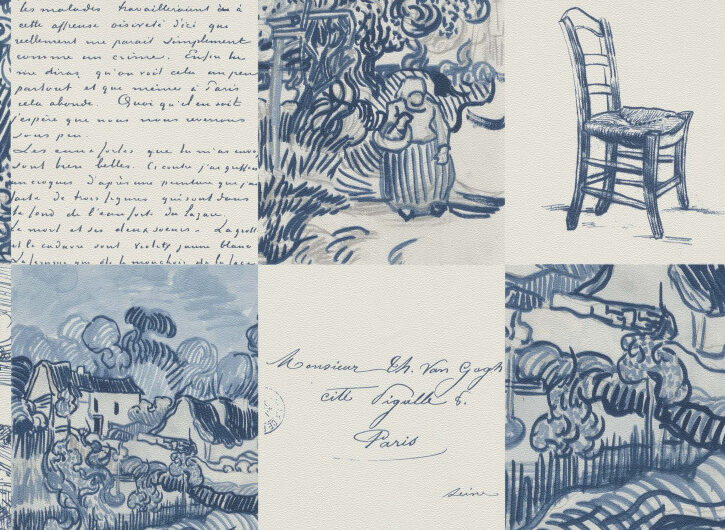 les malades travailleraient là à
cette affreuse oisiveté d'ici que
reellement me parait simplement
comme un crime. Enfin tu
me diras qu'on voit cela un peu
partout et que même à Paris
cela abonde. Quoi qu'il en soit
j'espère que nous nous reverrons
sous peu.
Les eaux fortes que tu m'as envoy
sont bien belles. Ci contre j'ai griffonn
un croquis d'après une peinture que j'ai
faite de trois figures qui sont dans
le fond de l'eau forte du Lazare.
le mort et ses deux soeurs. La grott
et le cadavre sont violet, jaune blanc
la femme que le mouchoir de la face
Monsieur Th. Van Gogh
cité Pigalle 8.
Paris
Seine